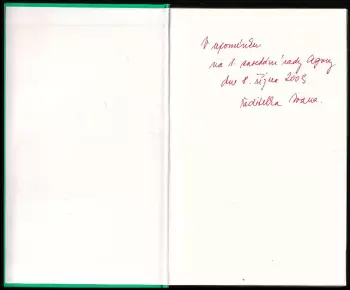 V upomínku
na 1. zasedání rady Agory
dne 8. října 2003
ředitelka Ivana.